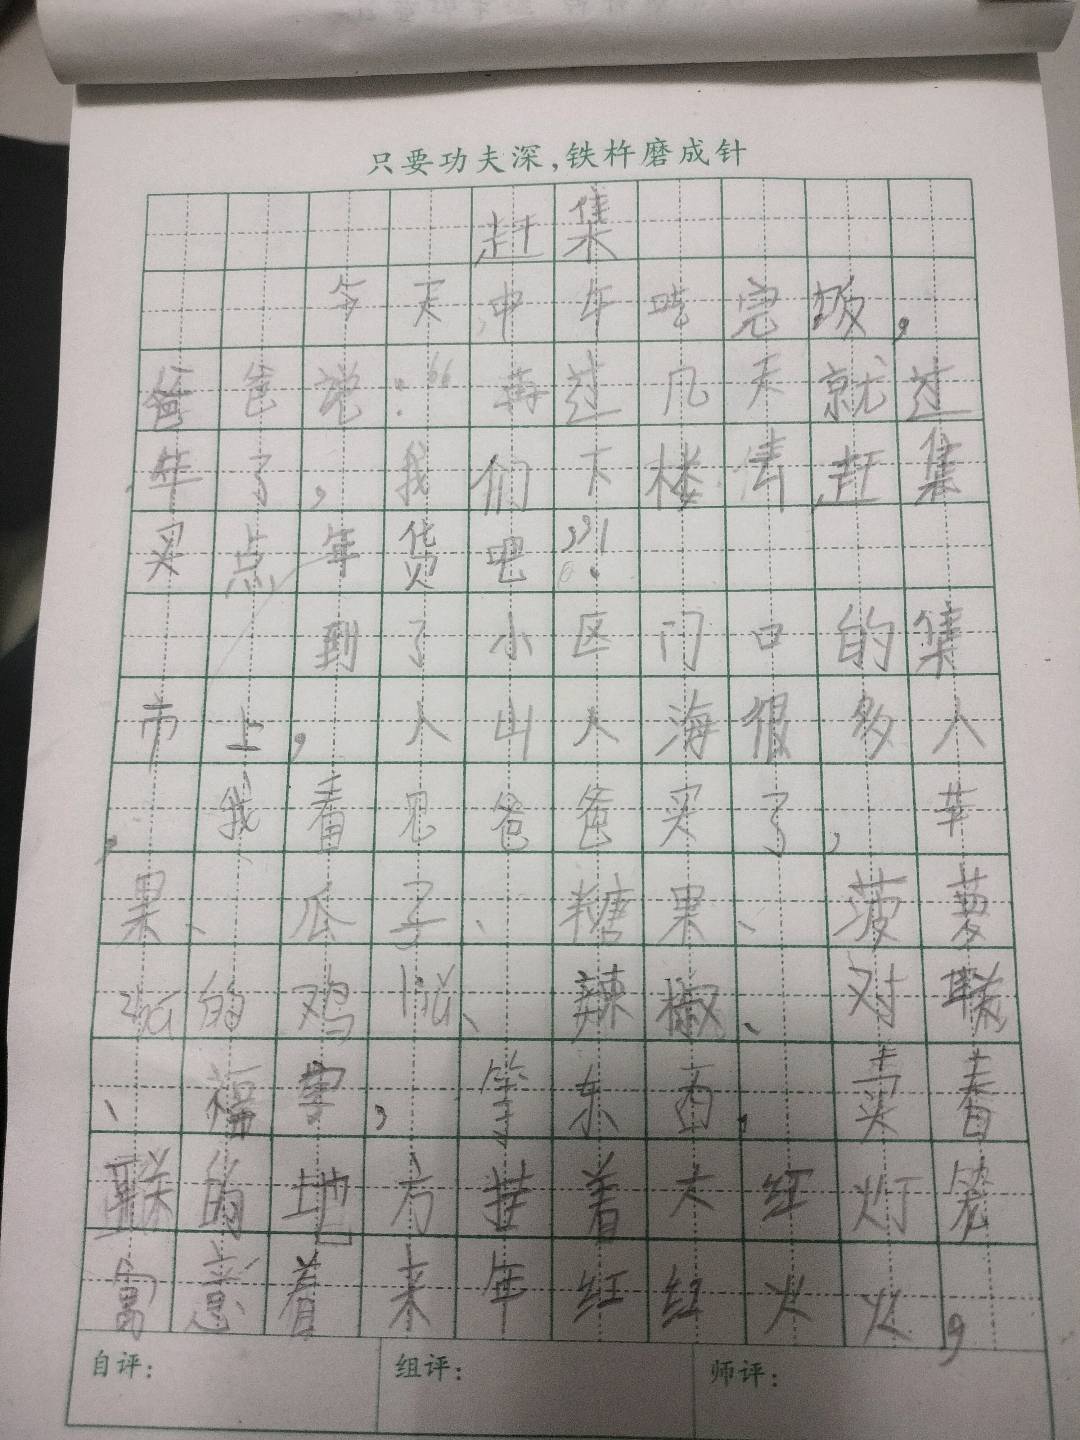 只要功夫深,铁杵磨成针
赶集
今天中午吃完饭,
爸爸说:“再过几天就过
年了,我们下楼去赶集
买点年货吧”!
到了小区门口的集
市上,人山人海很多人
,我看见爸爸买了,苹
果、瓜子、糖果、菠萝
的鸡、辣椒、对联
、福字,等东西,卖春
联的地方挂着大红灯笼
寓意着来年红红火火,
自评:
组评:
师评: